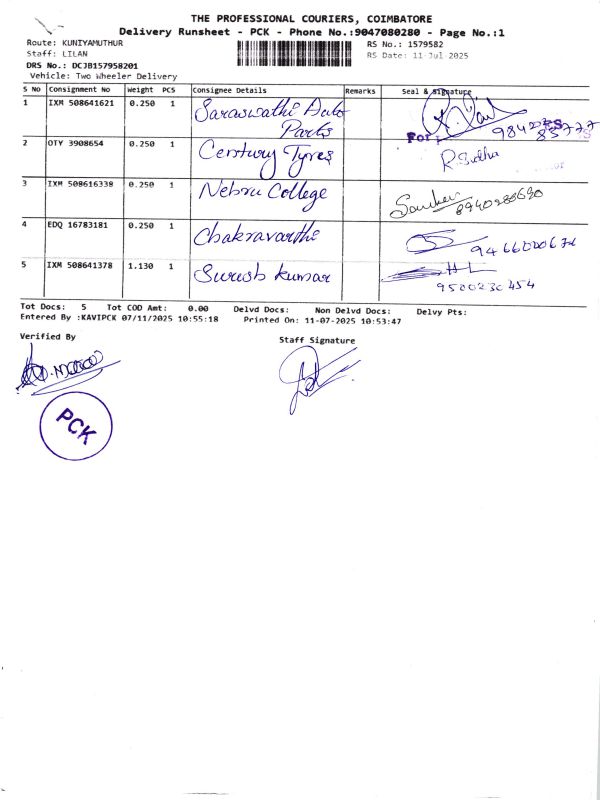 THE PROFESSIONAL COURIERS, COIMBATORE
Delivery Runsheet - PCK - Phone No.:9047080280 - Page No.:1
Route: KUNIYAMUTHUR RS No.: 1579582
Staff: LILAN RS Date: 11-Jul-2025
DRS No.: DCJB157958201
Vehicle: Two Wheeler Delivery
S No Consignment No Weight PCS Consignee Details Remarks Seal & Signature
1 IXM 508641621 0.250 1 Saraswathi Auto
Parts
For
2 OTY 3908654 0.250 1 Century Tyres R.Sudha
3 IXM 508616338 0.250 1 Nehru College
4 EDQ 16783181 0.250 1 Chakravarthi
5 IXM 508641378 1.130 1 Suresh kumar
9500230454
Tot Docs: 5 Tot COD Amt: 0.00 Delvd Docs: Non Delvd Docs: Delvy Pts:
Entered By :KAVIPCK 07/11/2025 10:55:18 Printed On: 11-07-2025 10:53:47
Verified By Staff Signature
PCK